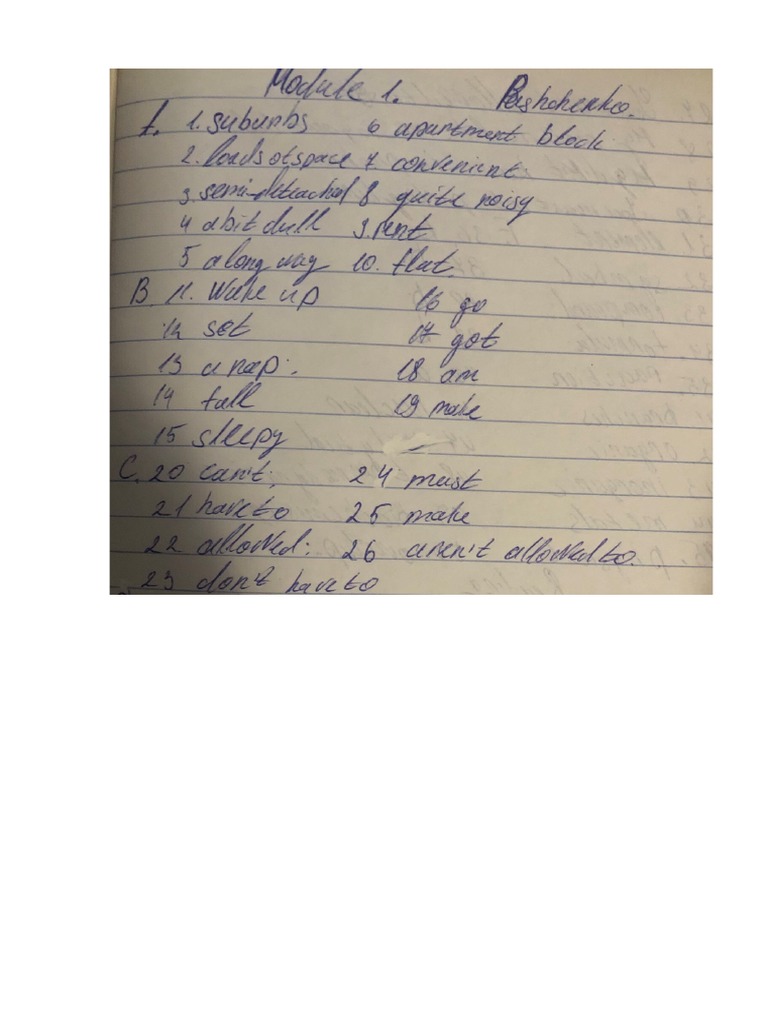 Module 1. Pashchenko.
A. 1. suburbs 6 apartment block.
2. loads of space 7 convenient.
3 semi-detached 8 quite noisy
4 a bit dull 9. rent
5 a long way 10. flat.
B 11. Wake up 16 go
12 set 17 got
13 a nap. 18 am
14 fall 19 make
15 sleepy
C. 20 can't, 24 must
21 have to 25 make
22 allowed. 26 aren't allowed to.
23 don't have to